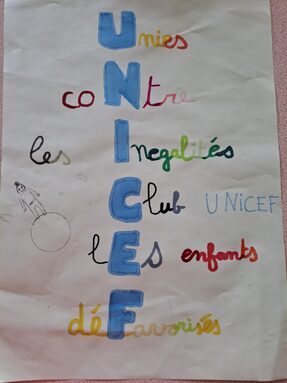 Unies
coNtre
les Inegalités
Club UNiCEF
lEs enfants
déFavorisés